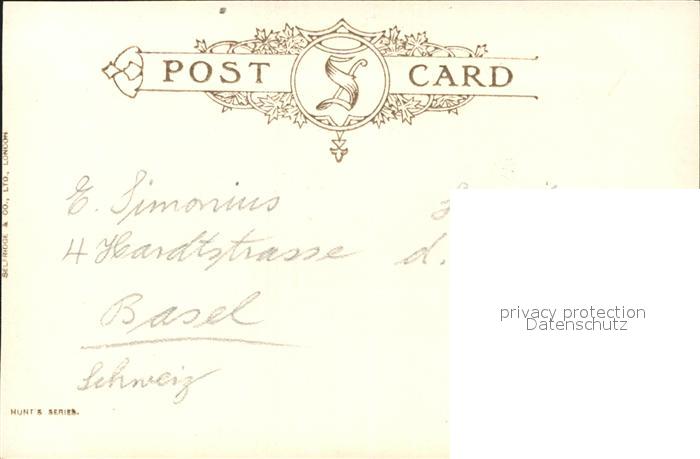 POST S CARD
SELFRIDGE & CO., LTD., LONDON
E. Simonius
4 Hardtstrasse
d.
Basel
Schweiz
HUNT'S SERIES.
privacy protection
Datenschutz